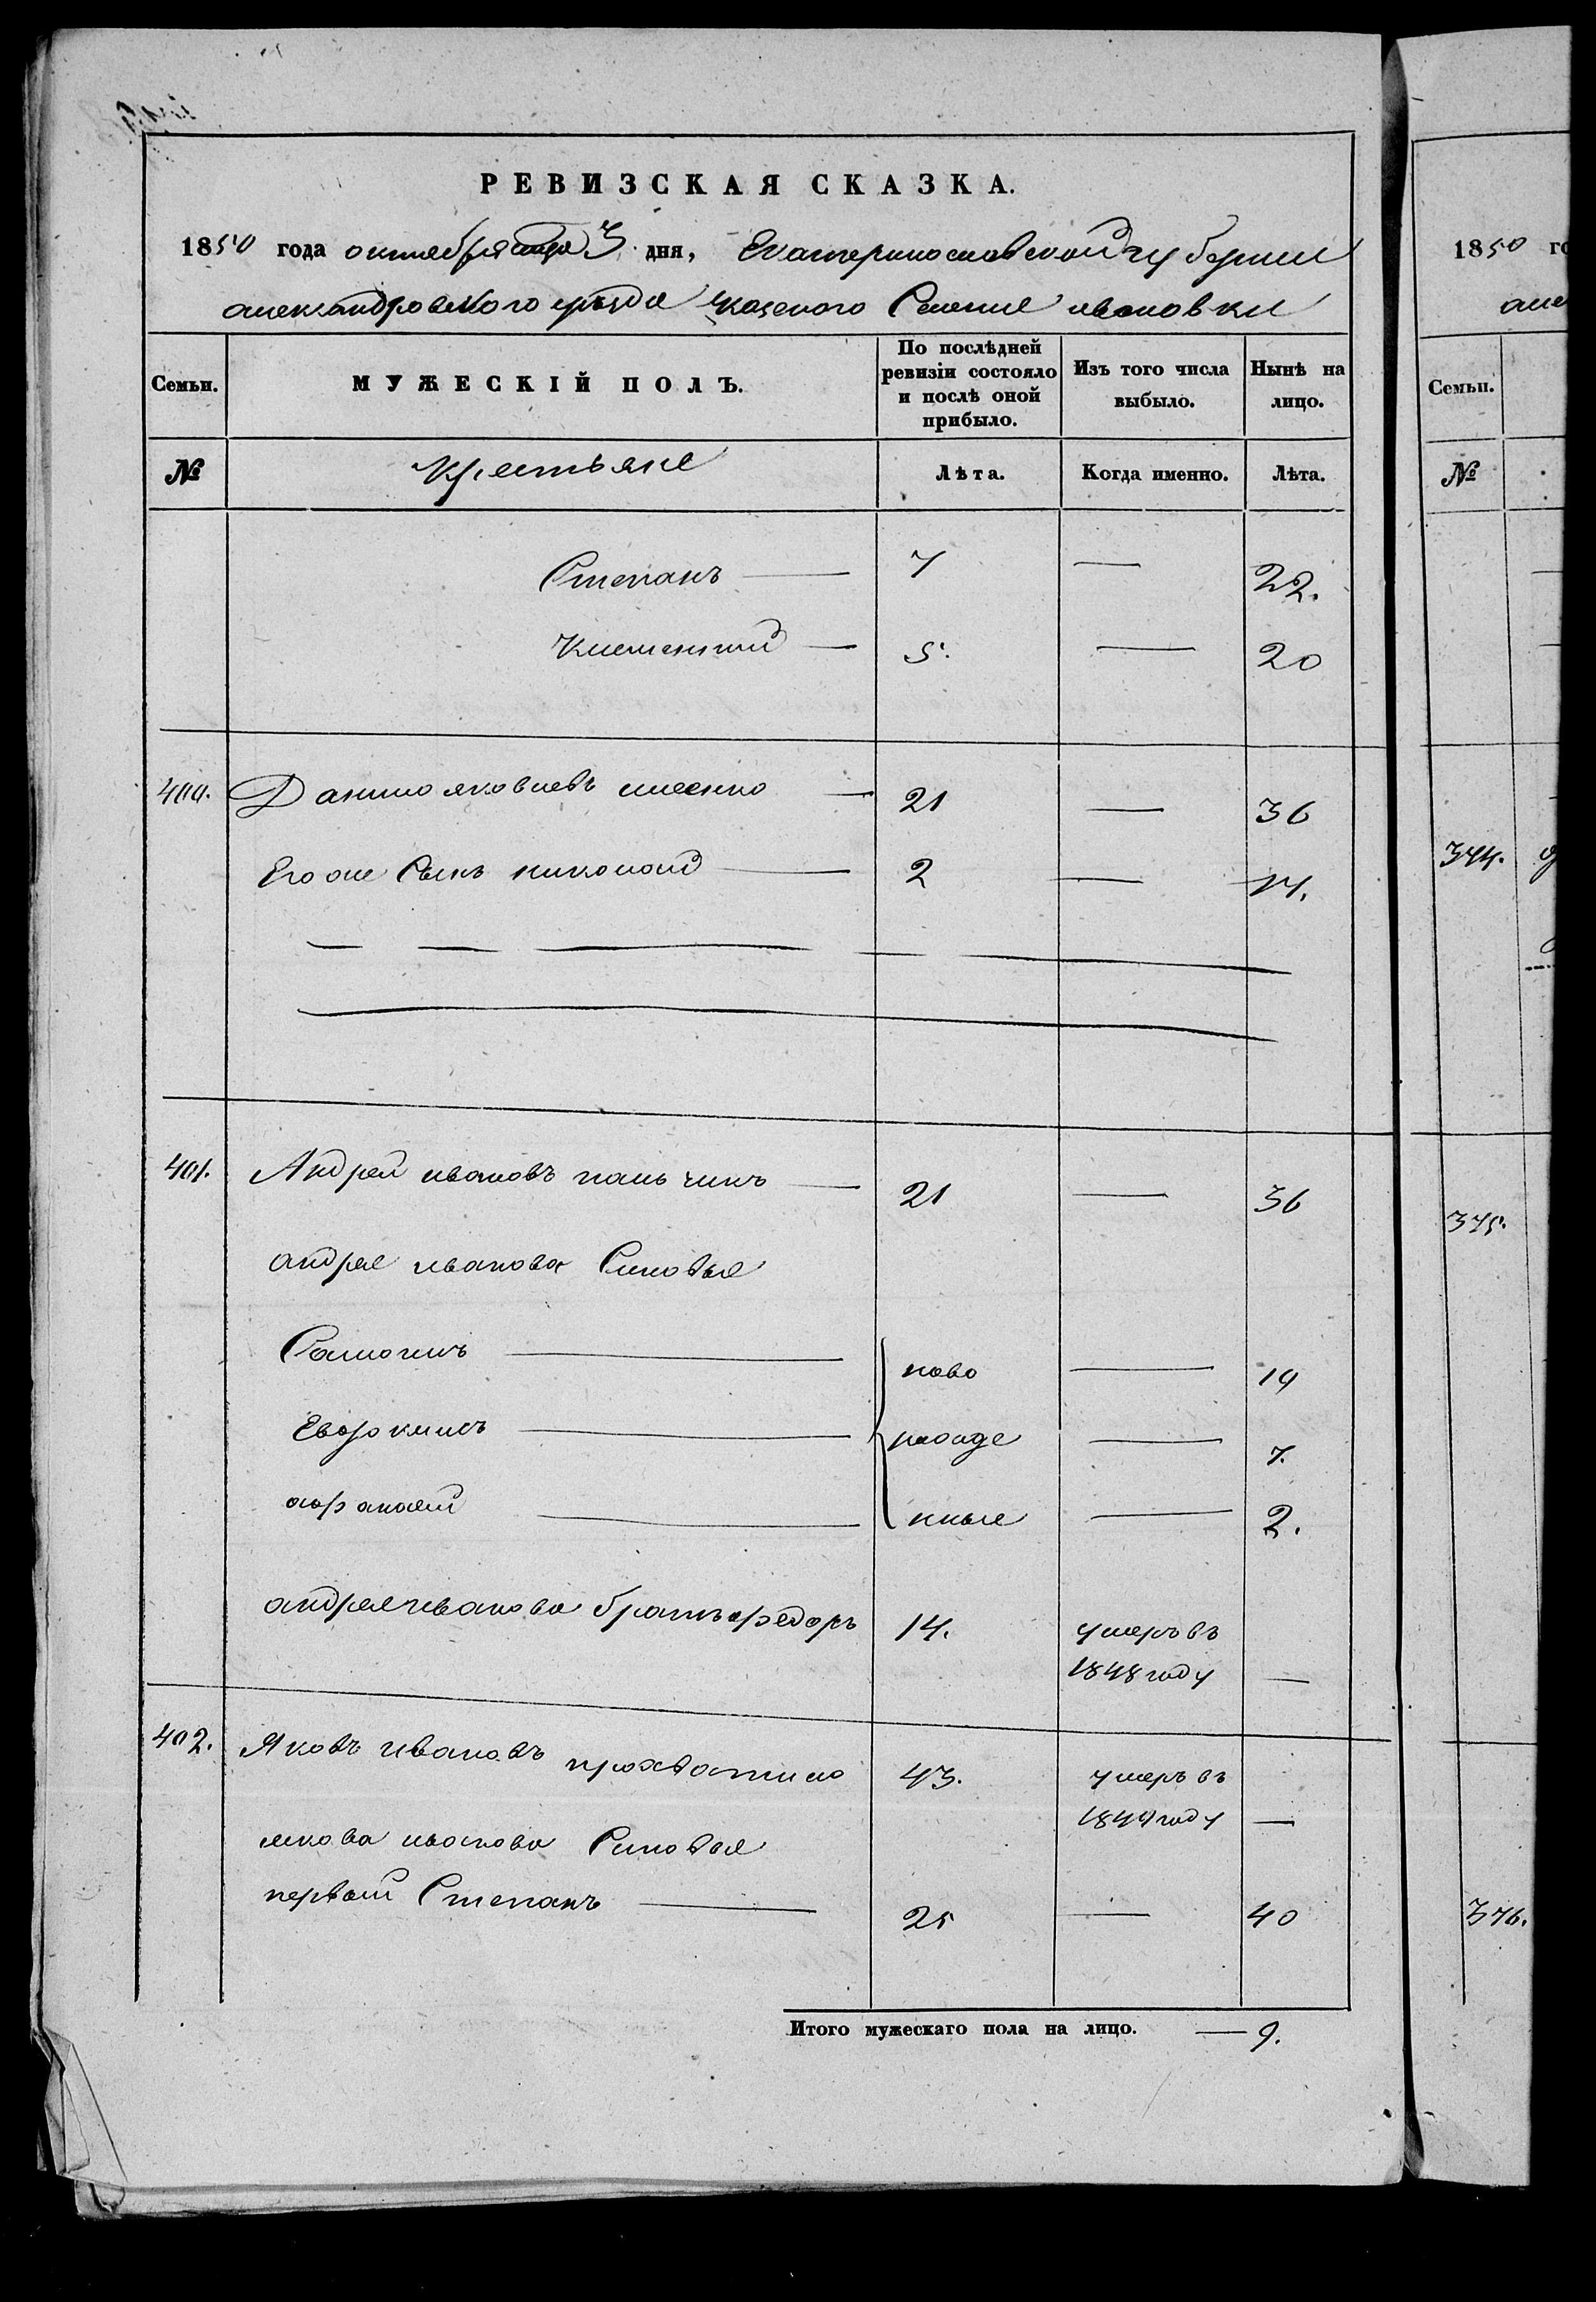 РЕВИЗСКАЯ СКАЗКА.
1850 года октября 3 дня, Екатеринославской губернии
александровского уезда казеного Селения ивановки
Семьи.
МУЖЕСКІЙ ПОЛЪ.
По послѣдней ревизіи состояло и послѣ оной прибыло.
Изъ того числа выбыло.
Нынѣ на лицо.
№ Крестьяне Лѣта. Когда именно. Лѣта.
Степанъ — 7 — 22.
Клементий — 5. — 20
400. Данило яковлевъ — 21 — 36
Его же Сынъ николай — 2 — 17.
401. Андрей ивановъ пальчикъ — 21 — 36
андрея иванова Синовья
Самоилъ — ново — 19
Евдокимъ — рожде — 7.
афанасий — нные — 2.
андрея иванова братъ федоръ 14. умеръ въ
1848 году —
402. Яковъ ивановъ прохватило 43. умеръ въ
1849 году —
якова иванова Синовья
первый Степанъ — 25 — 40
Итого мужескаго пола на лицо. — 9.
1850 го
але
Семьи.
№
374.
375.
376.